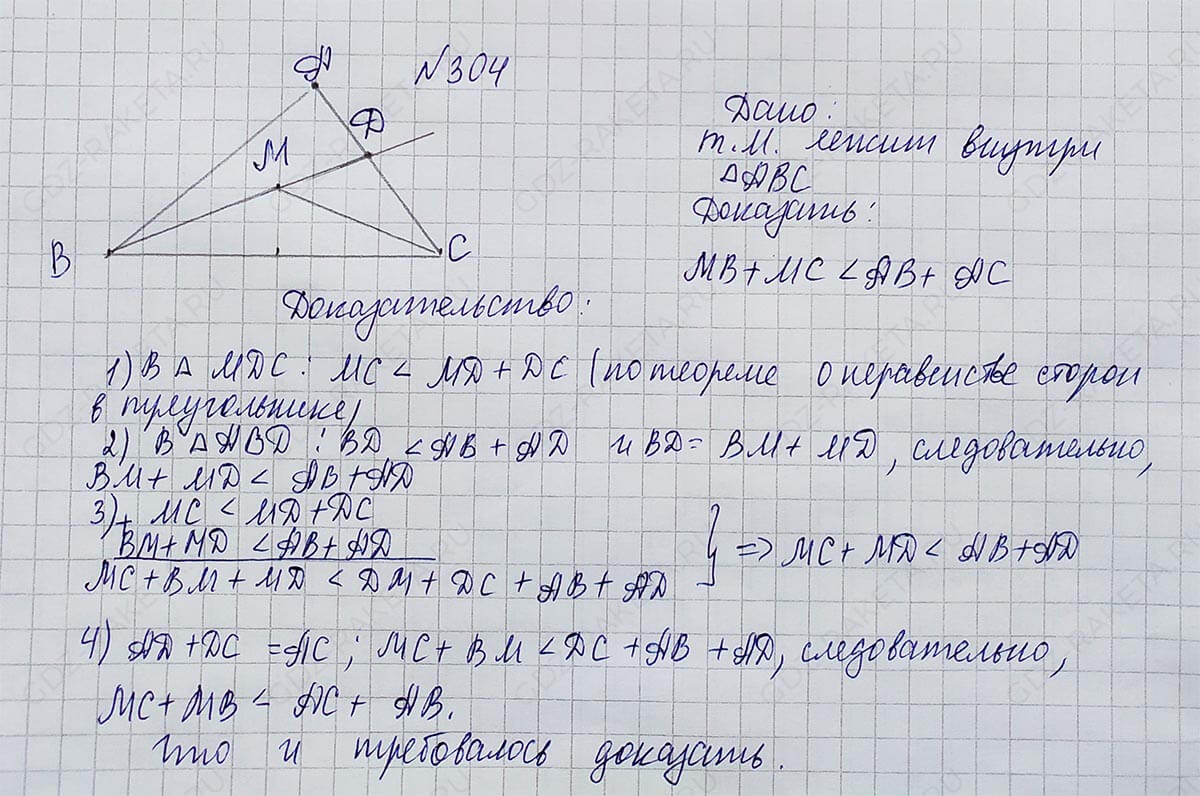 А
№304
Д
М
В
С
Дано:
т.М. лежит внутри
△ABC
Доказать:
MB+MC < AB+ AC
Доказательство:
1) В △ MDC: MC < MD + DC (по теореме о неравенстве сторон
в треугольнике)
2) В △ABD : BD < AB + AD и BD= BM+ MD, следовательно,
BM+ MD < AB+AD
3)+ MC < MD+DC
BM+MD < AB+ AD
MC+BM+MD < DM+ DC + AB+ AD } => MC+ MD < AB+AD
4) AD+DC =AC ; MC+ BM <DC +AB +AD, следовательно,
MC+MB < AC+ AB.
Что и требовалось доказать.
GDZ-RAKETA.RU